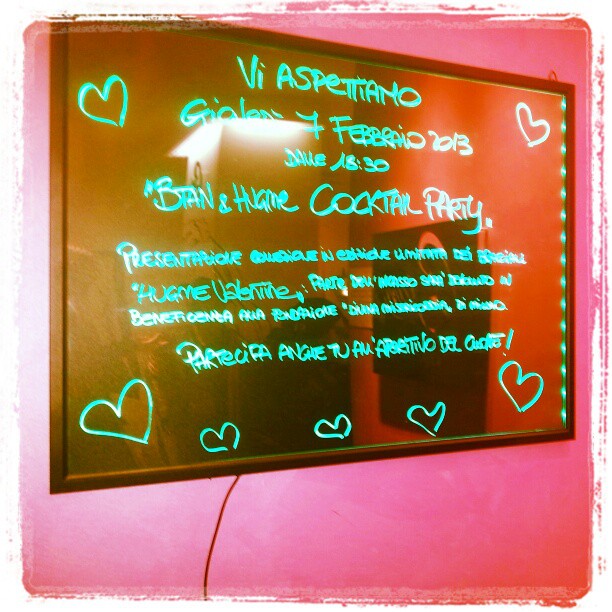 Vi ASPETTIAMO
Giovedì 7 FEBBRAIO 2013
DALLE 18:30
"BTAN & HUGME COCKTAIL PARTY"
PRESENTAZIONE IN EDIZIONE LIMITATA DEI BRACCIALI
"HUGME Valentine": PARTE DELL'INCASSO SARÀ DEVOLUTO IN
BENEFICENZA ALLA FONDAZIONE "DIVINA MISERICORDIA" DI MILANO.
PARTECIPA ANCHE TU ALL'APERITIVO DEL CUORE!